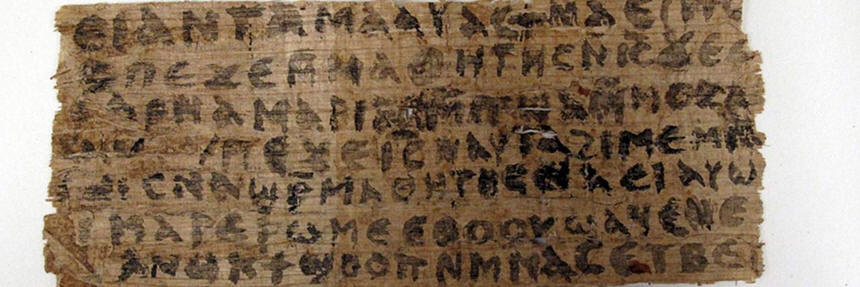 ⲉⲓ ⲁⲛ ⲧⲁⲙⲁⲁⲩ ⲁⲥϯ ⲛⲁⲉⲓ ⲡⲱ
ⲥ ⲡⲉϫⲉ ⲙ̅ⲙⲁⲑⲏⲧⲏⲥ ⲛⲓ̅ⲥ̅ ϫⲉ ⲥ
ⲁⲣⲛⲁ ⲙⲁⲣⲓⲁⲙ ⲙ̅ⲡϣⲁ ⲙ̅ⲙⲟⲥ ⲁ
ⲡⲉϫⲉ ⲓ̅ⲥ̅ ⲛⲁⲩ ⲧⲁϩⲓⲙⲉ ⲙⲛ
ⲥⲛⲁϣⲣ̅ⲙⲁⲑⲏⲧⲏⲥ ⲛⲁⲉⲓ ⲁⲩⲱ
ⲓ ⲙⲁⲣⲉⲣⲱⲙⲉ ⲉⲑⲟⲟⲩ ϣⲁϥⲉⲛⲉ
ⲁⲛⲟⲕ ϯϣⲟⲟⲡ ⲛⲙ̅ⲙⲁⲥ ⲉⲧⲃⲉ ⲡ